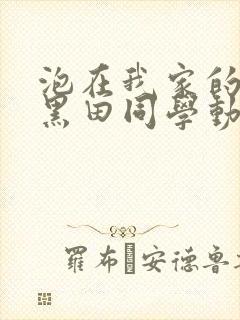 泡在我家的
黑田同學動
羅布·安德魯